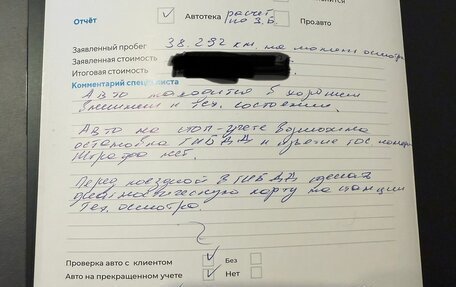 Отчёт Автотека расчет по З.Б Про.авто
Заявленный пробег 38.292 км, на момент осмотра
Заявленная стоимость
Итоговая стоимость
Комментарий специалиста
Авто находится в хорошем
внешнем и тех. состоянии.
Авто на стоп-учете возможна
остановка ГИБДД и изъятие гос номеров
Штрафов нет.
Перед поездкой в ГИБДД сделать
диагностическую карту на станции
Тех. осмотра.
Проверка авто с клиентом Без
Авто на прекращенном учете Нет